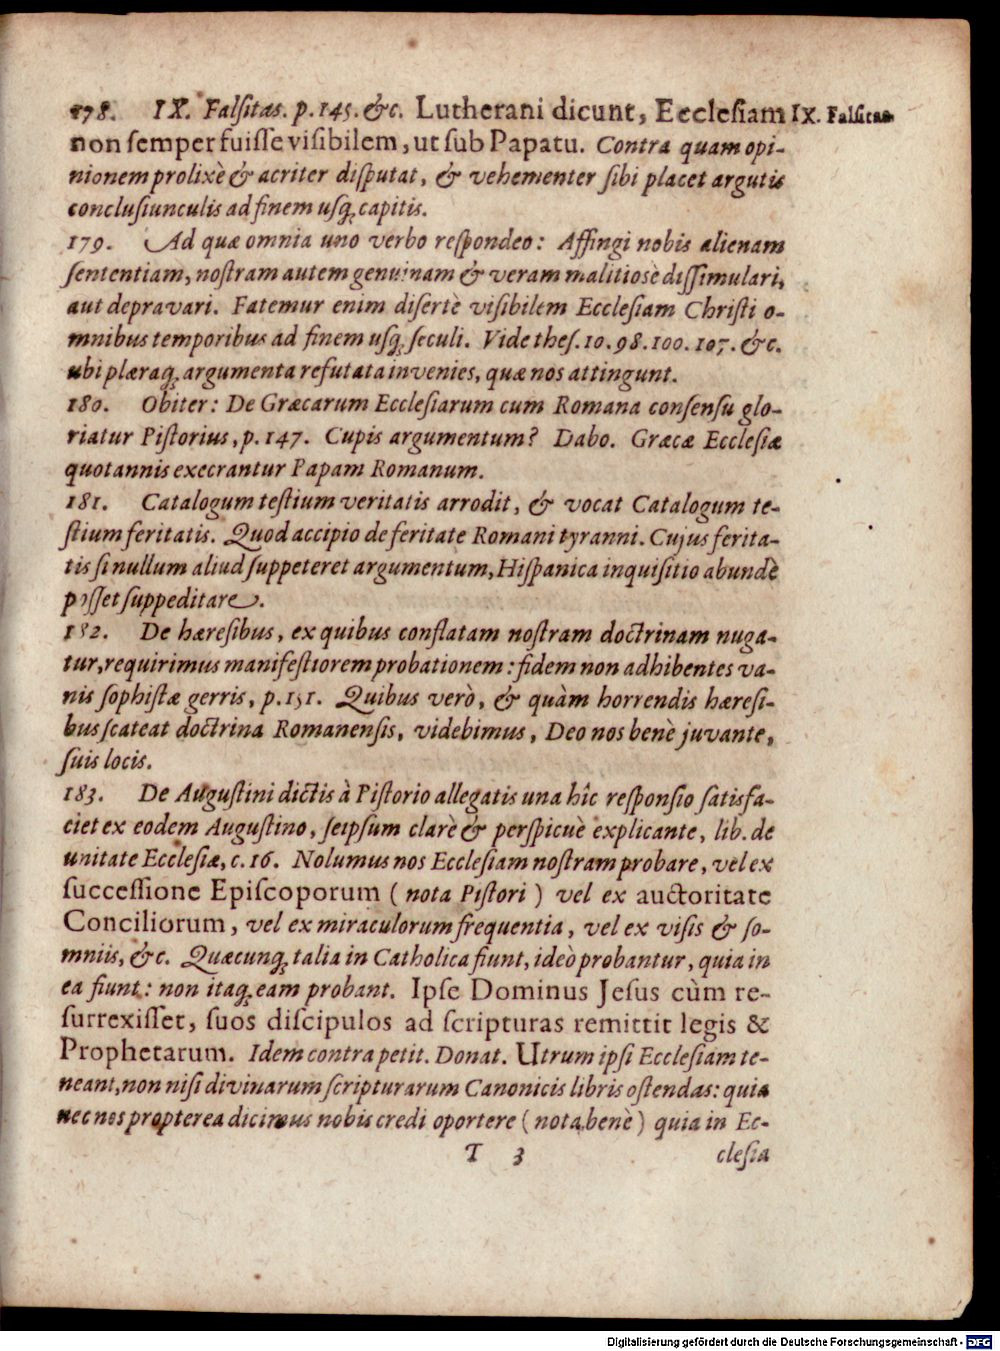 178. IX. Falſitas. p. 145. &c. Lutherani dicunt, Eccleſiam IX. Falſitas
non ſemper fuiſſe viſibilem, ut ſub Papatu. Contra quam opi-
nionem prolixè & acriter diſputat, & vehementer ſibi placet argutis
concluſiunculis ad finem uſq; capitis.
179. Ad quæ omnia uno verbo reſpondeo: Affingi nobis alienam
ſententiam, noſtram autem genuinam & veram malitioſè diſſimulari,
aut depravari. Fatemur enim diſertè viſibilem Eccleſiam Chriſti o-
mnibus temporibus ad finem uſq; ſeculi. Vide theſ. 10. 98. 100. 107. &c.
ubi plæraq; argumenta refutata invenies, quæ nos attingunt.
180. Obiter: De Græcarum Eccleſiarum cum Romana conſenſu glo-
riatur Piſtorius, p. 147. Cupis argumentum? Dabo. Græcæ Eccleſiæ
quotannis execrantur Papam Romanum.
181. Catalogum teſtium veritatis arrodit, & vocat Catalogum te-
ſtium feritatis. Quod accipio de feritate Romani tyranni. Cujus ferita-
tis ſi nullum aliud ſuppeteret argumentum, Hiſpanica inquiſitio abundè
poſſet ſuppeditare.
182. De hæreſibus, ex quibus conflatam noſtram doctrinam nuga-
tur, requirimus manifeſtiorem probationem: fidem non adhibentes va-
nis ſophiſtæ gerris, p. 151. Quibus verò, & quàm horrendis hæreſi-
bus ſcateat doctrina Romanenſis, videbimus, Deo nos benè juvante,
ſuis locis.
183. De Auguſtini dictis à Piſtorio allegatis una hîc reſponſio ſatisfa-
ciet ex eodem Auguſtino, ſeipſum clarè & perſpicuè explicante, lib. de
unitate Eccleſiæ, c. 16. Nolumus nos Eccleſiam noſtram probare, vel ex
ſucceſſione Epiſcoporum ( nota Piſtori ) vel ex auctoritate
Conciliorum, vel ex miraculorum frequentia, vel ex viſis & ſo-
mniis, &c. Quæcunq; talia in Catholica fiunt, ideò probantur, quia in
ea fiunt: non itaq; eam probant. Ipſe Dominus Jeſus cùm re-
ſurrexiſſet, ſuos diſcipulos ad ſcripturas remittit legis &
Prophetarum. Idem contra petit. Donat. Utrum ipſi Eccleſiam te-
neant, non niſi divinarum ſcripturarum Canonicis libris oſtendas: quia
nec nos propterea dicimus nobis credi oportere ( nota benè ) quia in Ec-
T 3 cleſia
Digitalisierung gefördert durch die Deutsche Forschungsgemeinschaft - DFG